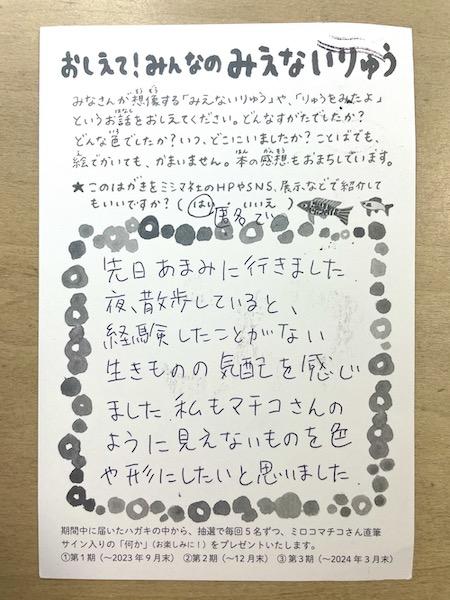 おしえて！みんなのみえないりゅう
みなさんが想像する「みえないりゅう」や、「りゅうをみたよ」
というお話をおしえてください。どんなすがたでしたか？
どんな色でしたか？いつ、どこにいましたか？ことばでも、
絵でかいても、かまいません。本の感想もおまちしています。
★このはがきをミシマ社のHPやSNS、展示などで紹介して
もいいですか？（はい・いいえ）
匿名で
先日あまみに行きました
夜、散歩していると、
経験したことがない
生きものの気配を感じ
ました 私もマチコさんの
ように見えないものを色
や形にしたいと思いました
期間中に届いたハガキの中から、抽選で毎回5名ずつ、ミロコマチコさん直筆
サイン入りの「何か」（お楽しみに！）をプレゼントいたします。
①第1期（〜2023年9月末）②第2期（〜12月末）③第3期（〜2024年3月末）